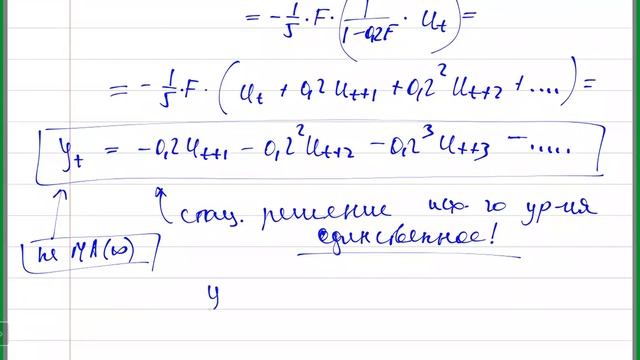 = -1/5 · F · (1/(1-0,2F) · u_t) =
= -1/5 · F · (u_t + 0,2 u_{t+1} + 0,2² u_{t+2} + ....) =
y_t = -0,2 u_{t+1} - 0,2² u_{t+2} - 0,2³ u_{t+3} - .....
стац. решение исх-го ур-ия
не MA(∞)
единственное!
y